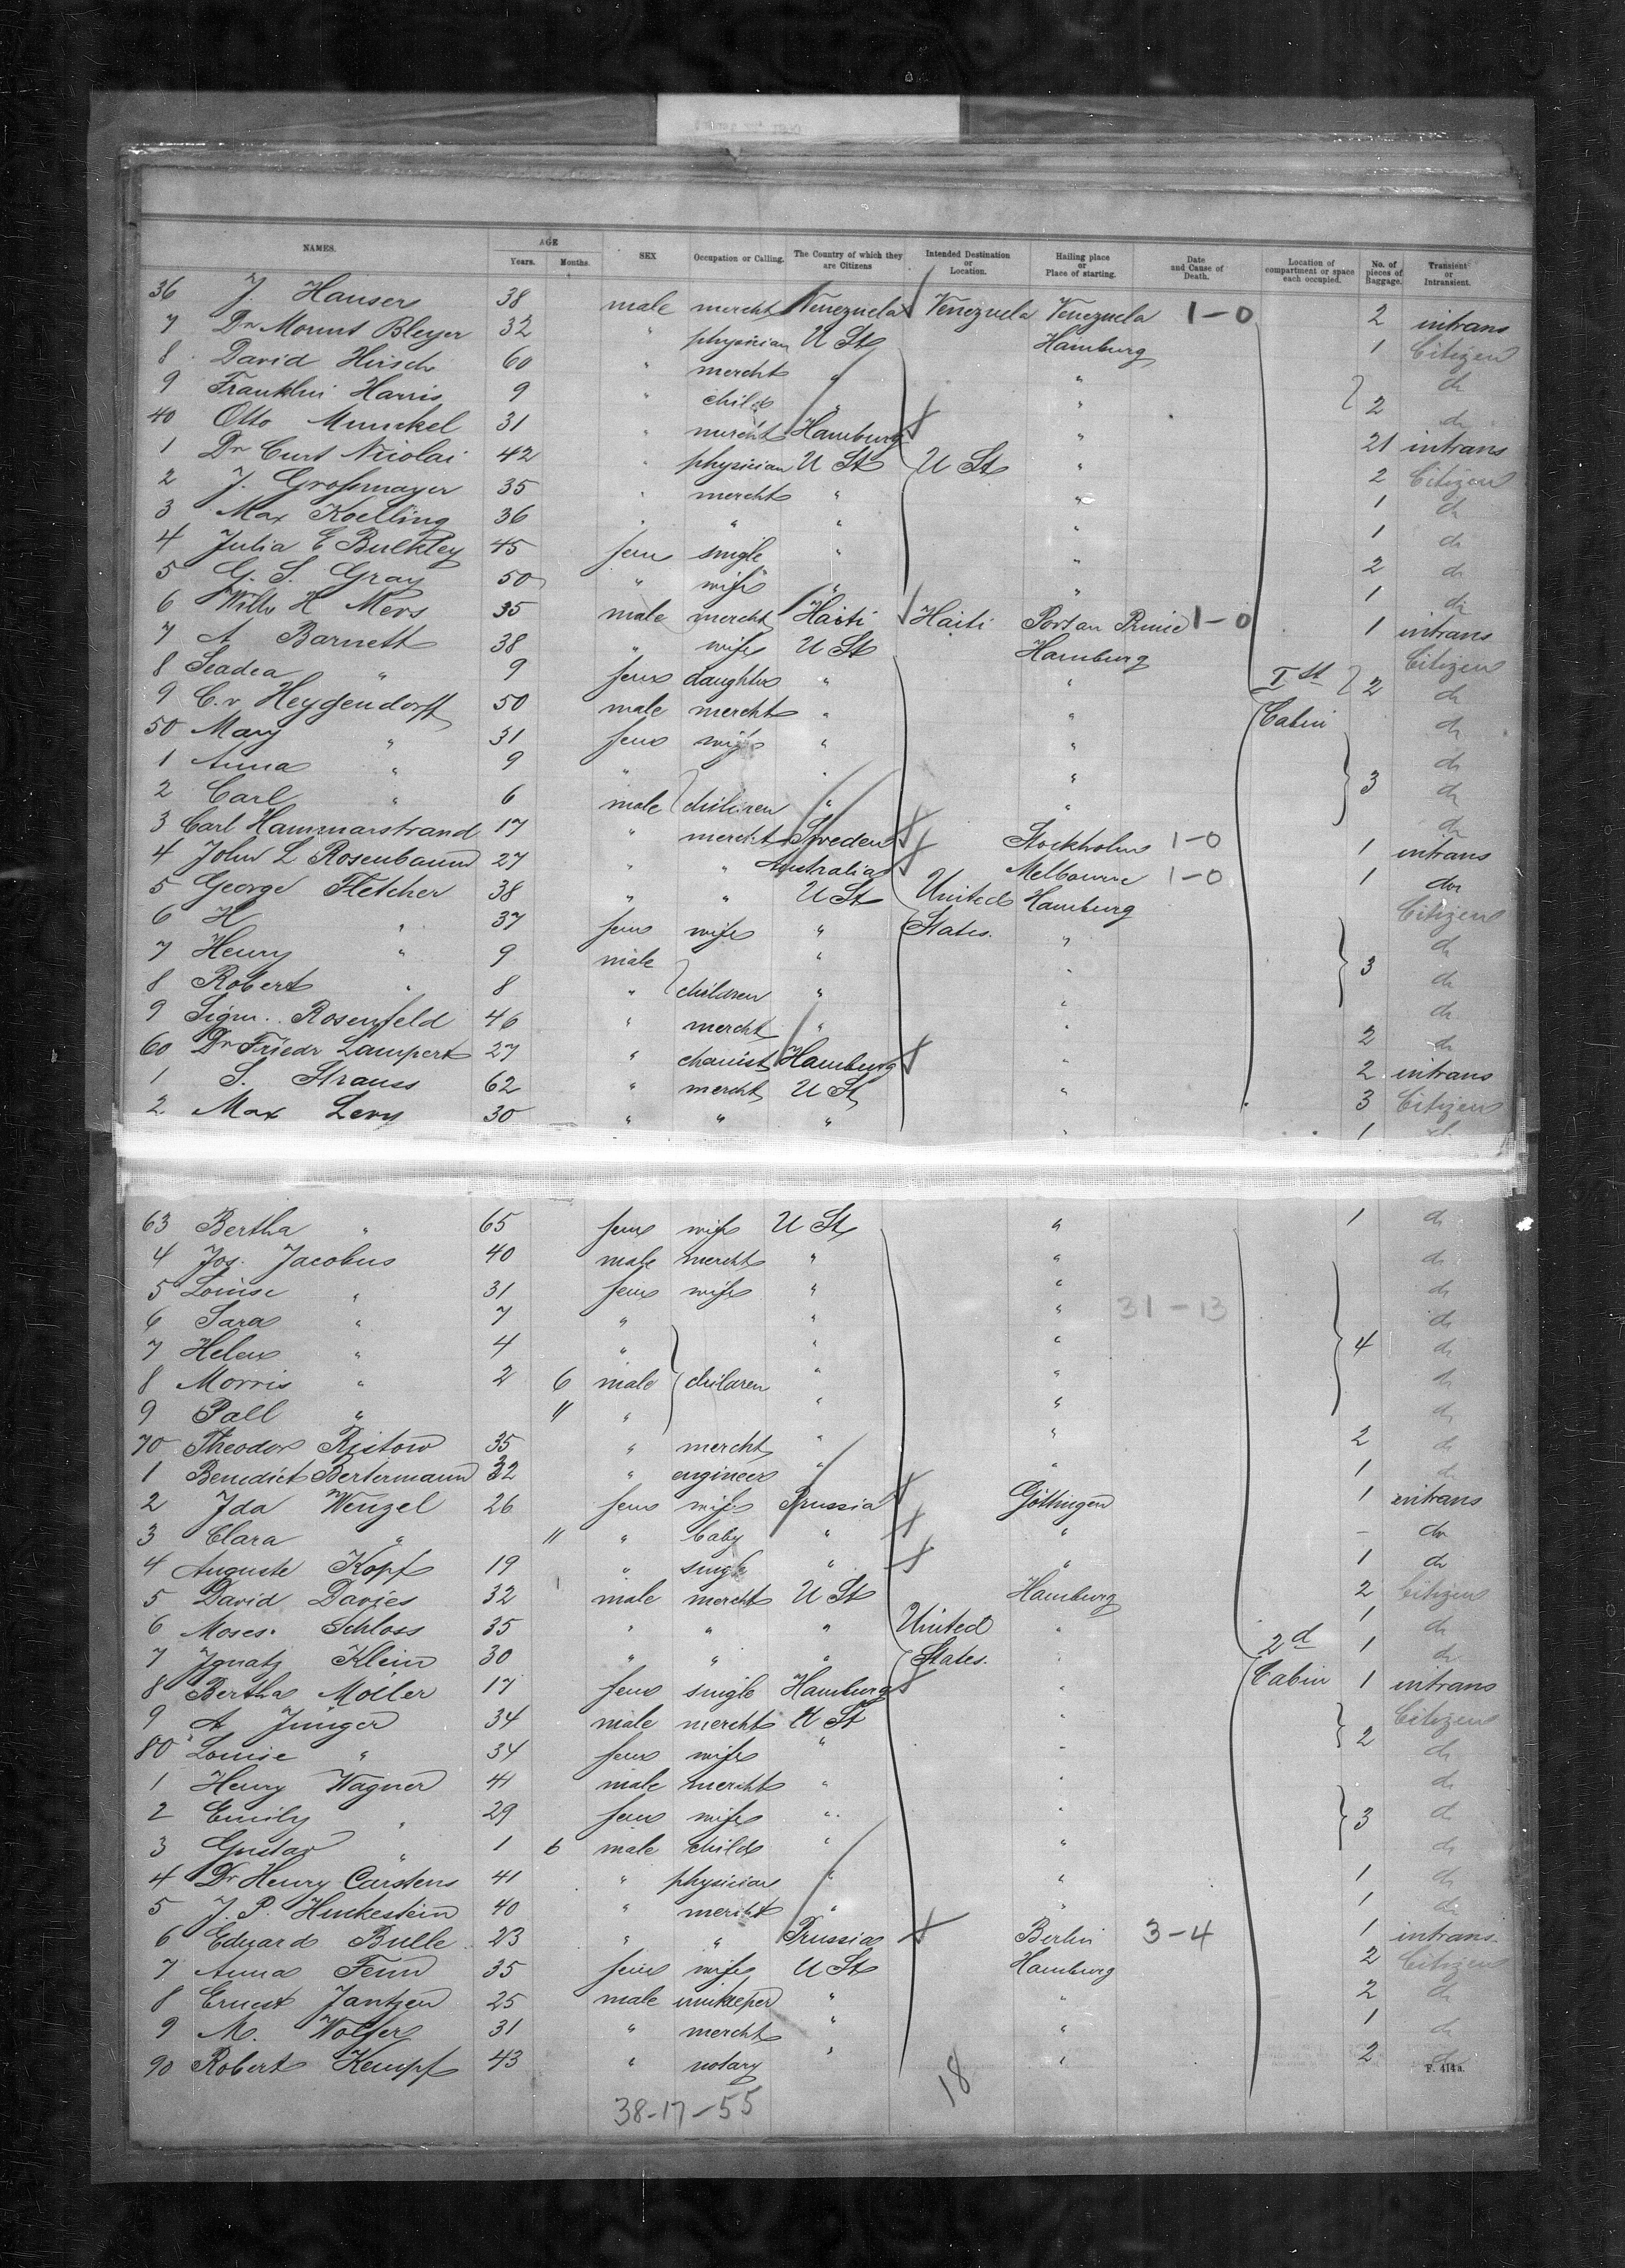 NAMES. AGE Years. Months. SEX Occupation or Calling. The Country of which they are Citizens Intended Destination or Location. Hailing place or Place of starting. Date and Cause of Death. Location of compartment or space each occupied. No. of pieces of Baggage. Transient or Intransient.
36 J. Hauser 38 male mercht Venezuela Venezuela Venezuela 1-0 2 intrans
7 Dr Mount Bleyer 32 " physician U St Hamburg 1 Citizen
8 David Hirsch 60 " mercht " " do
9 Franklin Harris 9 " child " " 2 do
40 Otto Munckel 31 " mercht Hamburg " 21 intrans
1 Dr Curt Nicolai 42 " physician U St U St " 2 Citizen
2 J. Grossmayer 35 " mercht " " 1 do
3 Max Koelling 36 " " " " 1 do
4 Julia E Bulkley 45 fem single " " 2 do
5 G. S. Gray 50 " wife " " 1 do
6 Willy H Mers 35 male mercht Haiti Haiti Port au Prince 1-0 1 intrans
7 A Barnett 38 " wife U St Hamburg Citizen
8 Seadea " 9 fem daughter " " Ist 2 do
9 C. v Heygendorff 50 male mercht " " Cabin do
50 Mary " 31 fem wife " " do
1 Anna " 9 " " " 3 do
2 Carl " 6 male children " " do
3 Carl Hammarstrand 17 " mercht Sweden Stockholm 1-0 1 intrans
4 John L Rosenbaum 27 " " Australia Melbourne 1-0 1 do
5 George Fletcher 38 " " U St United Hamburg Citizen
6 H " 37 fem wife " States. " do
7 Henry " 9 male " " 3 do
8 Robert " 8 " children " " do
9 Sigm. Rosenfeld 46 " mercht " " 2 do
60 Dr Friedr Lampert 27 " chemist Hamburg " 2 intrans
1 S. Strauss 62 " mercht U St " 3 Citizen
2 Max Levy 30 " " " " 1 do
63 Bertha " 65 fem wife U St " 1 do
4 Jos. Jacobus 40 male mercht " " do
5 Louise " 31 fem wife " " do
6 Sara " 7 " " " 31-13 do
7 Helen " 4 " " " 4 do
8 Morris " 2 6 male children " " do
9 Pall " 11 " " " do
70 Theodor Ristow 35 " mercht " " 2 do
1 Benedict Bertermann 32 " engineer " " 1 do
2 Ida Wenzel 26 fem wife Prussia Göttingen 1 intrans
3 Clara " 11 " baby " " - do
4 Auguste Kopf 19 " single " " 1 do
5 David Davies 32 male mercht U St Hamburg 2 Citizen
6 Moses. Schloss 35 " " " United " 1 do
7 Ignatz Klein 30 " " " States. " 2d 1 do
8 Bertha Möller 17 fem single Hamburg " Cabin 1 intrans
9 A Jünger 34 male mercht U St " 2 Citizen
80 Louise " 34 fem wife " " do
1 Henry Wagner 41 male mercht " " do
2 Emily " 29 fem wife " " 3 do
3 Gustav " 1 6 male child " " do
4 Dr Henry Carstens 41 " physician " " 1 do
5 J. P. Hinkestein 40 " mercht " " 1 do
6 Eduard Bulle 23 " " Prussia Berlin 3-4 1 intrans
7 Anna Fenn 35 fem wife U St Hamburg 2 Citizen
8 Ernest Jantzen 25 male innkeeper " " 2 do
9 M. Wolfer 31 " mercht " " 1 do
90 Robert Kempf 43 " notary " " 2 do
F. 414a.
38-17-55 18